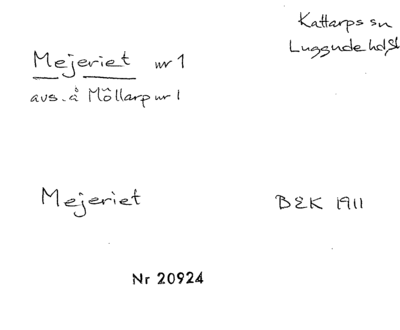 Kattarps sn
Luggude hd Sk
Mejeriet nr 1
avs. å Möllarp nr 1
Mejeriet
BEK 1911
Nr 20924